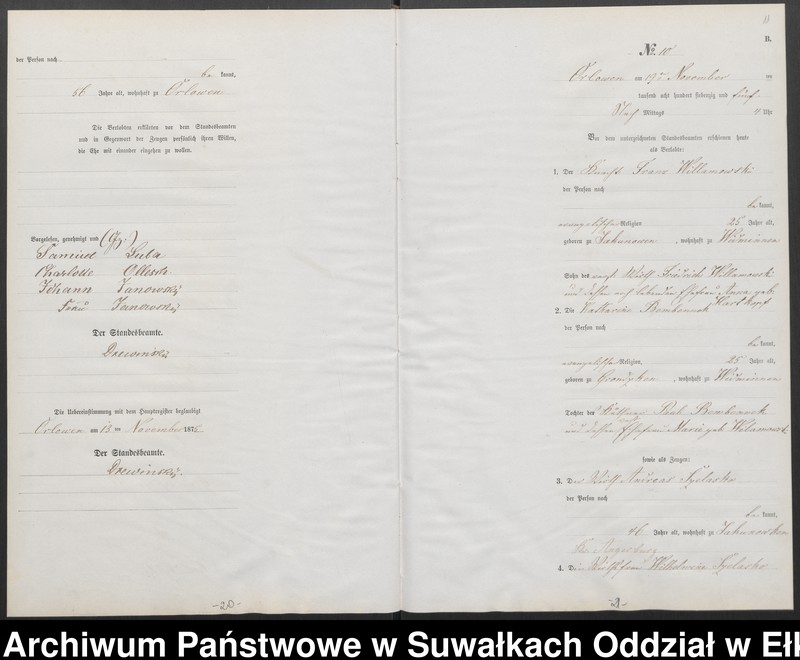 der Person nach
be kannt,
56 Jahre alt, wohnhaft zu Orlowen
Die Verlobten erklärten vor dem Standesbeamten
und in Gegenwart der Zeugen persönlich ihren Willen,
die Ehe mit einander eingehen zu wollen.
Vorgelesen, genehmigt und (Gz.)
Samuel Luba
Charlotte
Johann Janowsky
Frau Janowsky
Der Standesbeamte.
Drewinsky
Die Uebereinstimmung mit dem Hauptregister beglaubigt
Orlowen am 15 ten November 1875
Der Standesbeamte.
Drewinsky.
-20-
11
B.
No. 10
Orlowen am 19ten November ein
tausend acht hundert siebenzig und fünf
Nach Mittags 4 Uhr
Vor dem unterzeichneten Standesbeamten erschienen heute
als Verlobte:
1. Der Franz Willamowski
der Person nach
be kannt,
evangelischer Religion 25 Jahre alt,
geboren zu Jakunowen, wohnhaft zu
Sohn des Wirth Friedrich Willamowski
und dessen noch lebenden Ehefrau Anna geb.
Karlkopf
2. Die Katharine Bembennek
der Person nach
be kannt,
evangelischer Religion, 25 Jahre alt,
geboren zu Grondzken, wohnhaft zu
Tochter des Paul Bembennek
und dessen Ehefrau Marie geb Willamowski
sowie als Zeugen:
3. Der Wirth Andreas Szelasko
der Person nach
be kannt,
46 Jahre alt, wohnhaft zu Jakunowken
Kr. Angerburg
4. Die Wirthsfrau Wilhelmine Szelasko
-21-
Archiwum Państwowe w Suwałkach Oddział w Ełk